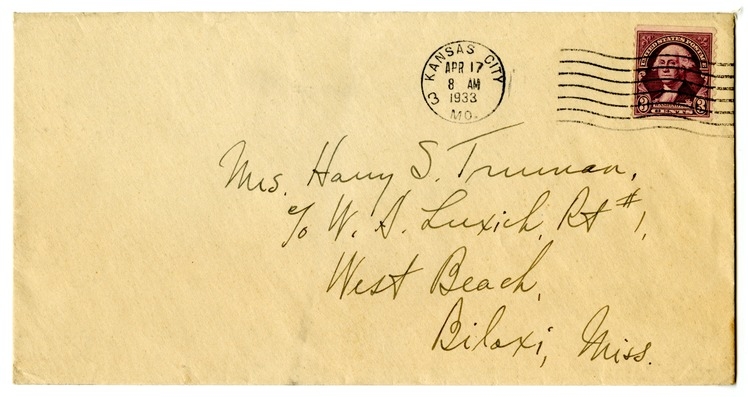 KANSAS CITY
APR 17
8 AM
1933
3
MO.
UNITED STATES POSTAGE
3 3
CENTS
Mrs. Harry S. Truman,
c/o W. A. Luxich, Rt #1,
West Beach,
Biloxi, Miss.